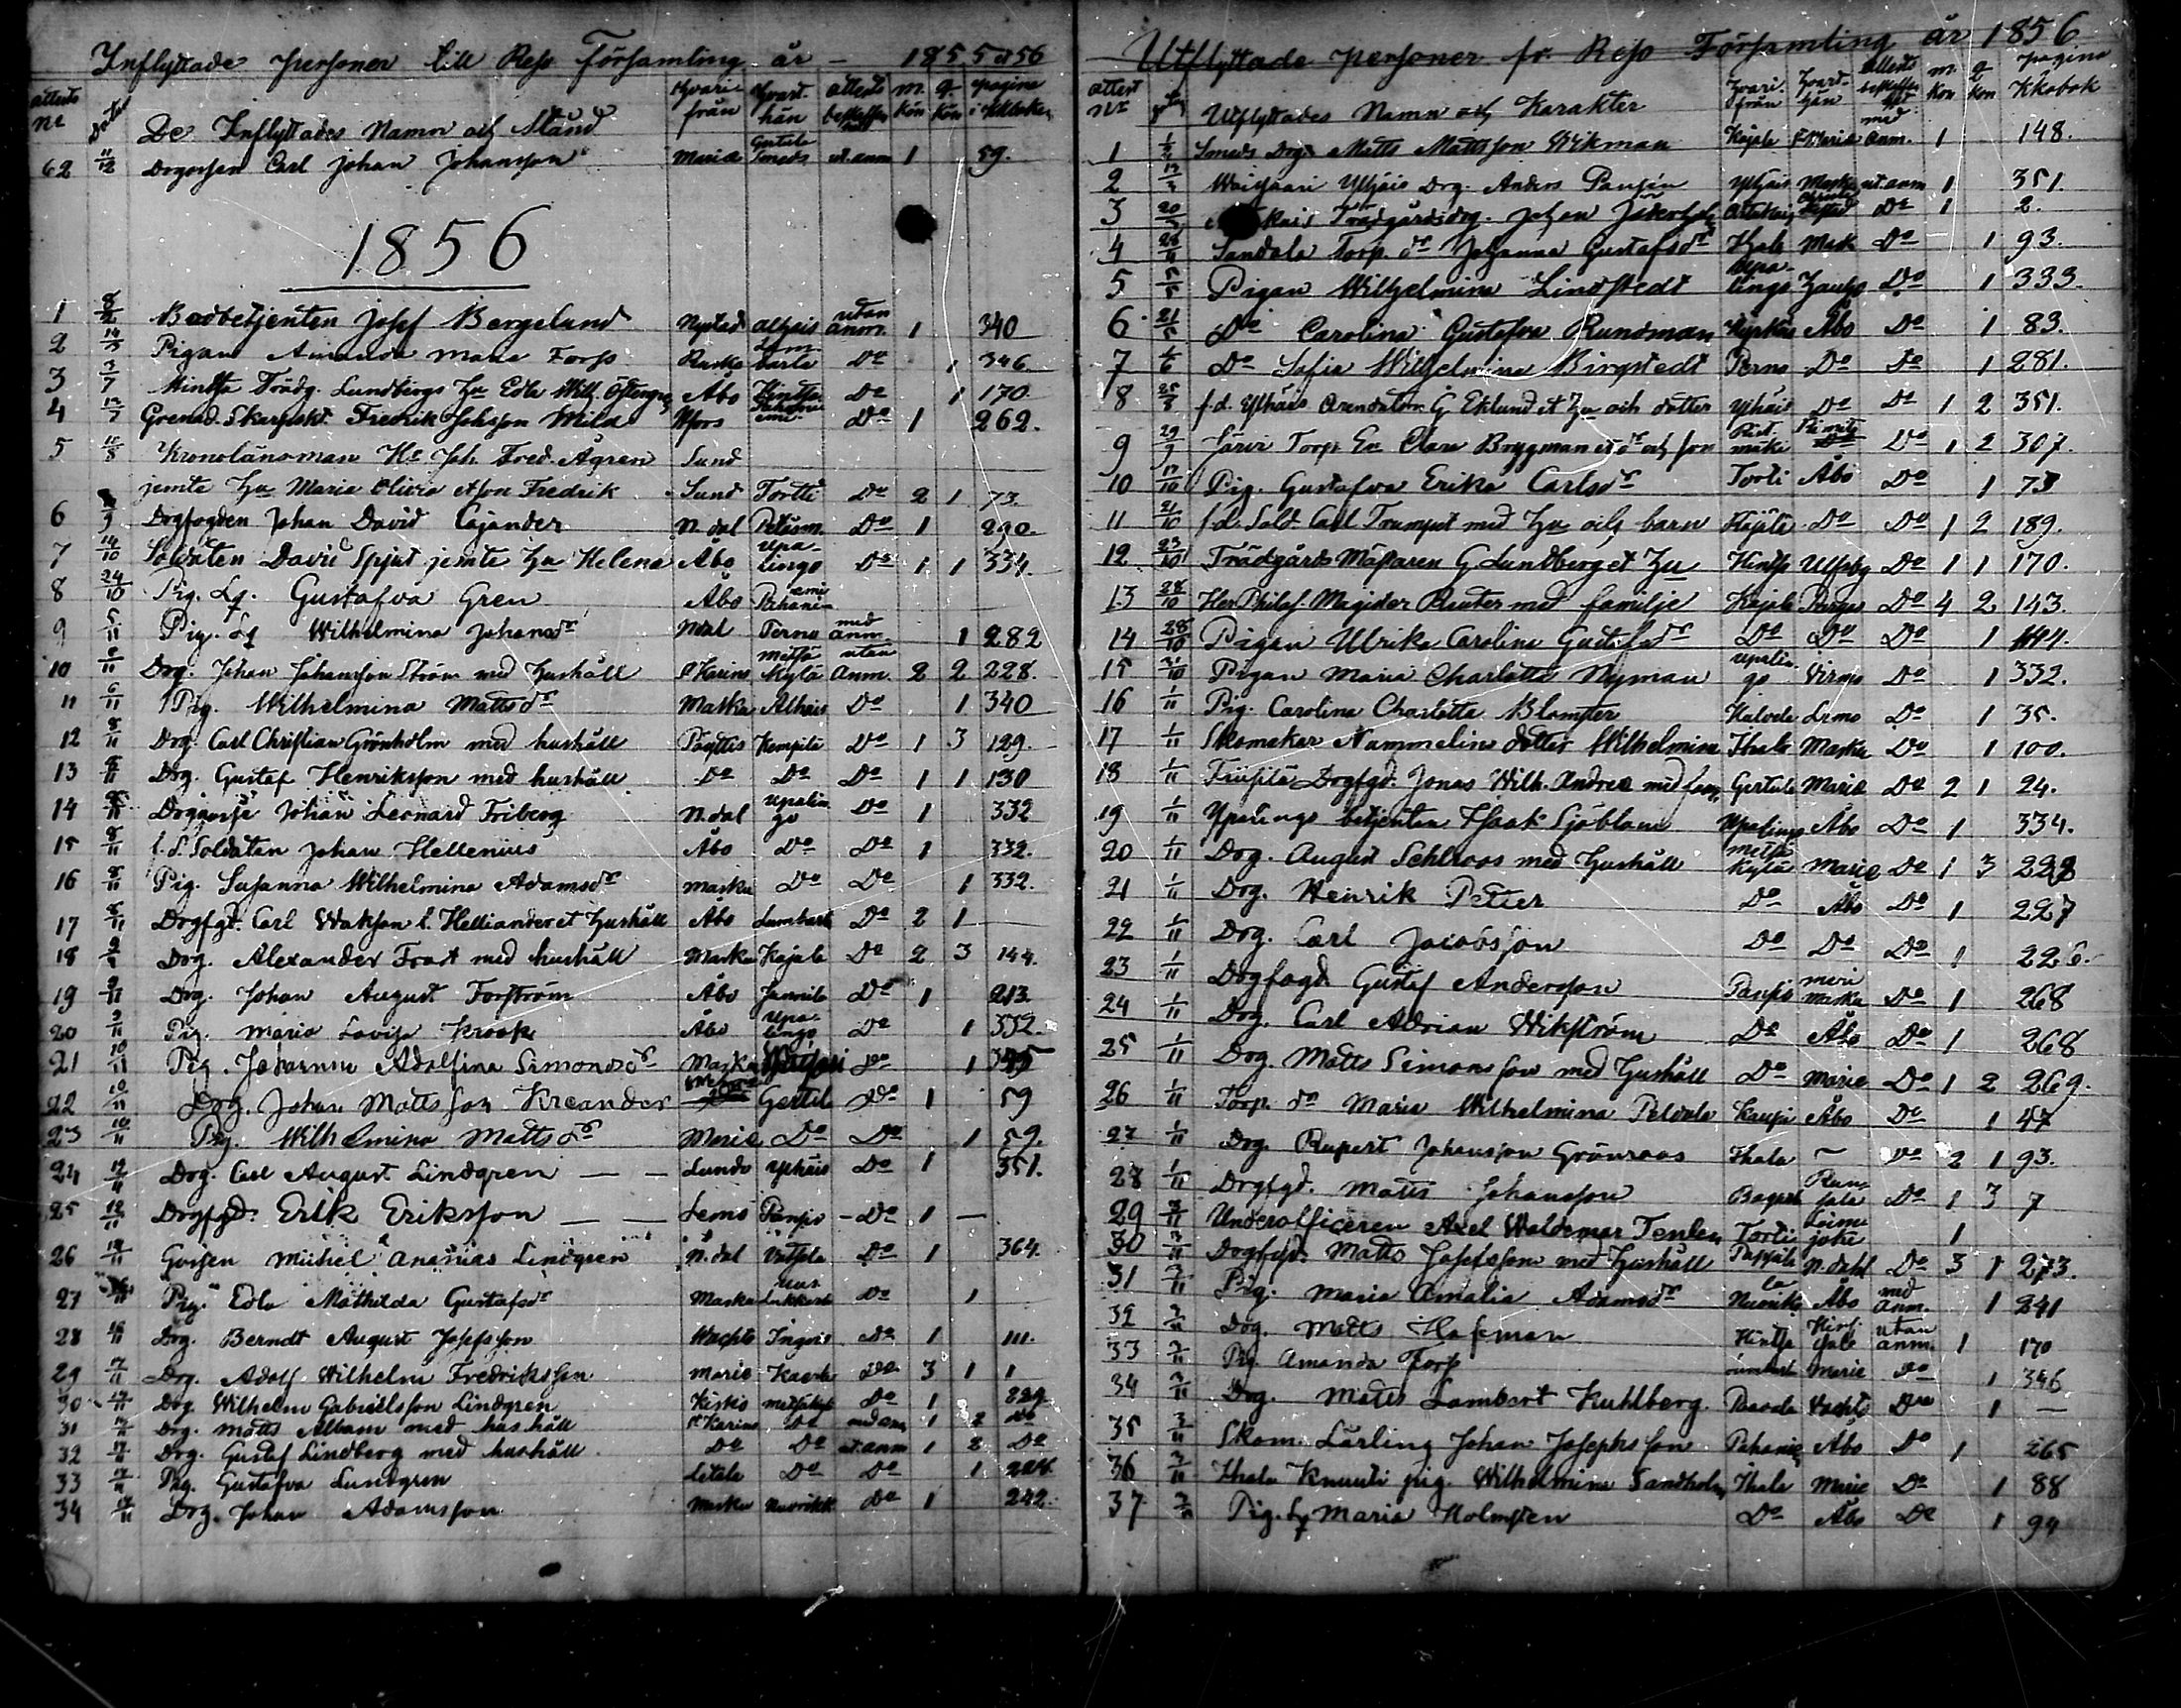 Inflyttade personer till Reso Församling år - 1855 o 56
attests No
De Inflyttades Namn och Stånd
hvarifrån hvarthän attests beskaffen m. kön q. kön pagina i Kkboken
62 11/12 Dogossen Carl Johan Johansson Maria Gertula Smeds ut.anm 1 59.
1856
1 8/2 Badbetjenten Josef Bergelund Nystad Alhais utan anm. 1 340
2 14/3 Pigan Amanda Maria Forss Rusko Do 1 346.
3 3/7 Hintsa Trädg. Lundbergs hu Edla Wilh. Åbo Hintsa Do 1 170
4 12/7 Grenad. Skarpskt. Fredrik Johsson Mild Hfors Do 1 262.
5 11/8 Kronolänsman Hr Joh. Fred. Ågren Sund
jemte hu Maria Olivia et son Fredrik Sund Tortti Do 2 1 73.
6 Dogfogden Johan David Cajander N.dal Do 1 290.
7 14/10 Soldaten David Spjut jemte hu Helena Åbo Upalingo Do 1 1 334.
8 24/10 Pig. Lq. Gustafva Gren Åbo
9 5/11 Pig. Lq Wilhelmina Johansdr Ndal Perno med anm. 1 282
10 5/11 Drg. Johan Johansson Ström med hushåll St Karins Metsäkylä utan Anm. 2 2 228.
11 6/11 Pig. Wilhelmina Mattsdr Masku Alhais Do 1 340
12 8/11 Drg. Carl Christian Grönholm med hushåll Pöyttis Kempilä Do 1 3 129.
13 8/11 Drg. Gustaf Henriksson med hushåll Do Do Do 1 1 130
14 8/11 Drggosse Johan Leonard Friberg N.dal Upalingo Do 1 332
15 8/11 f.d. Soldaten Johan Hellenius Åbo Do Do 1 332.
16 8/11 Pig. Susanna Wilhelmina Adamsdr Masku Do Do 1 332.
17 8/11 Drgfgd. Carl Hellander et hushåll Åbo Do 2 1
18 Drg. Alexander Frast med hushåll Masku Kajala Do 2 3 144.
19 9/11 Drg. Johan August Forström Åbo Do 1 213.
20 9/11 Pig. Maria Lovisa Krook Åbo Upalingo Do 1 332.
21 10/11 Pig. Johanna Adolfina Simonsdr Masku Do 1
22 10/11 Drg. Johan Mattsson Kreander Gertul Do 1 59
23 10/11 Pig. Wilhelmina Mattsdr Marie Do Do 1 59.
24 Drg. Carl August Lindgren Lundo Ylhäis Do 1 351.
25 12/11 Drgfgd. Erik Eriksson Lemo Panso Do 1
26 12/11 Gossen Michel Ananias Lindgren N.dal Do 1 364.
27 Pig. Edla Mathilda Gustafsdr Masku Do 1
28 Drg. Berndt August Josefsson Ingois Do 1 111.
29 17/11 Drg. Adolf Wilhelm Fredriksson Marie Do 3 1 1
30 17/11 Drg. Wilhelm Gabrielsson Lindgren Do 1 229.
31 Drg. Matts Albom med hushåll St Karins Do med anm 1 2 Do
32 17/11 Drg. Gustaf Lindberg med hushåll Do Do ut.anm 1 2 Do
33 17/11 Pig. Gustafva Lundgren Letala Do Do 1
34 17/11 Drg. Johan Adamsson Masku Do 1 242.
Utflyttade personer fr. Reso Församling år 1856
attest No Utflyttades Namn och Karakter hvarifrån hvarthän attests beskaffenhet m. kön q. kön pagina Kkobok
1 Smeds Drg. Matts Mattsson Wikman Kajala St Maria med anm. 1 148.
2 Ylhäis Drg. Anders Pansin Ylhäis Masku ut.anm 1 351.
3 Trädgårdsdrg. Johan Do 1 2.
4 Sandala Torp. dr Johanna Gustafsdr Ihala Mask Do 1 93.
5 5/5 Pigan Wilhelmina Lindstedt Upalingo Do 1 333.
6 21/5 Do Carolina Gustafva Rundman Åbo Do 1 83.
7 Do Sofia Wilhelmina Birgstedt Perno Do Do 1 281.
8 f.d. Ylhäis Arendatorn G. Eklund et hu och dotter Ylhäis Do Do 1 2 351.
9 29/9 Järvi Torp. Clara Bryggman et dr och son Do 1 2 307.
10 Pig. Gustafva Erika Carlsdr Torti Åbo Do 1 73
11 21/10 f.d. Sold. Carl Trumpet med hu och barn Do Do 1 2 189.
12 23/10 Trädgårds Mästaren G Lundberg et hu Hintsa Ulfsby Do 1 1 170.
13 28/10 Her Philos. Magister Reuter med familje Kajala Pargas Do 4 2 143.
14 28/10 Pigan Ulrika Carolina Gustafsdr Do Do Do 1 144.
15 31/10 Pigan Maria Charlotta Nyman Upalingo Virmo Do 1 332.
16 1/11 Pig. Carolina Charlotta Blomster Lemo Do 1 35.
17 1/11 Skomakar Nummelins dotter Wilhelmina Ihala Masku Do 1 100.
18 1/11 Drgfgd. Jonas Wilh. Andrea med fam. Gertula Marie Do 2 1 24.
19 1/11 Upalingo betjenten Isaak Sjöblom Upalingo Åbo Do 1 334.
20 1/11 Drg. August Sehlroos med hushåll Metsäkylä Marie Do 1 3 228
21 1/11 Drg. Henrik Petter Do Åbo Do 1 227
22 1/11 Drg. Carl Jacobsson Do Do Do 1 226.
23 1/11 Drgfogd. Gustaf Andersson Panso Merimasku Do 1 268
24 1/11 Drg. Carl Adrian Wikström Do Åbo Do 1 268
25 1/11 Drg. Matts Simonsson med hushåll Do Marie Do 1 2 269.
26 1/11 Torp. dr Maria Wilhelmina Åbo Do 1 47
27 1/11 Drg. Rupert Johansson Grönroos Ihala Do 2 1 93.
28 1/11 Drgfgd. Matts Johansson Do 1 3 7
29 Underofficeren Axel Waldemar Torti Loimijoki 1
30 Drgfgd. Matts Josefsson med hushåll N.dahl Do 3 1 273.
31 Pig. Maria Amalia Adamsdr Åbo med anm. 1 241
32 Drg. Matts Hafman Hintsa utan anm. 1 170
33 Pig. Amanda Forss Marie Do 1 346
34 Drg. Matts Lambert Kuhlberg Do 1 —
35 Skom. Lärling Johan Josephsson Åbo Do 1 265
36 Ihala Knuuti pig. Wilhelmina Sandholm Ihala Marie Do 1 88
37 Pig. Lq Maria Holmsten Do Åbo Do 1 94